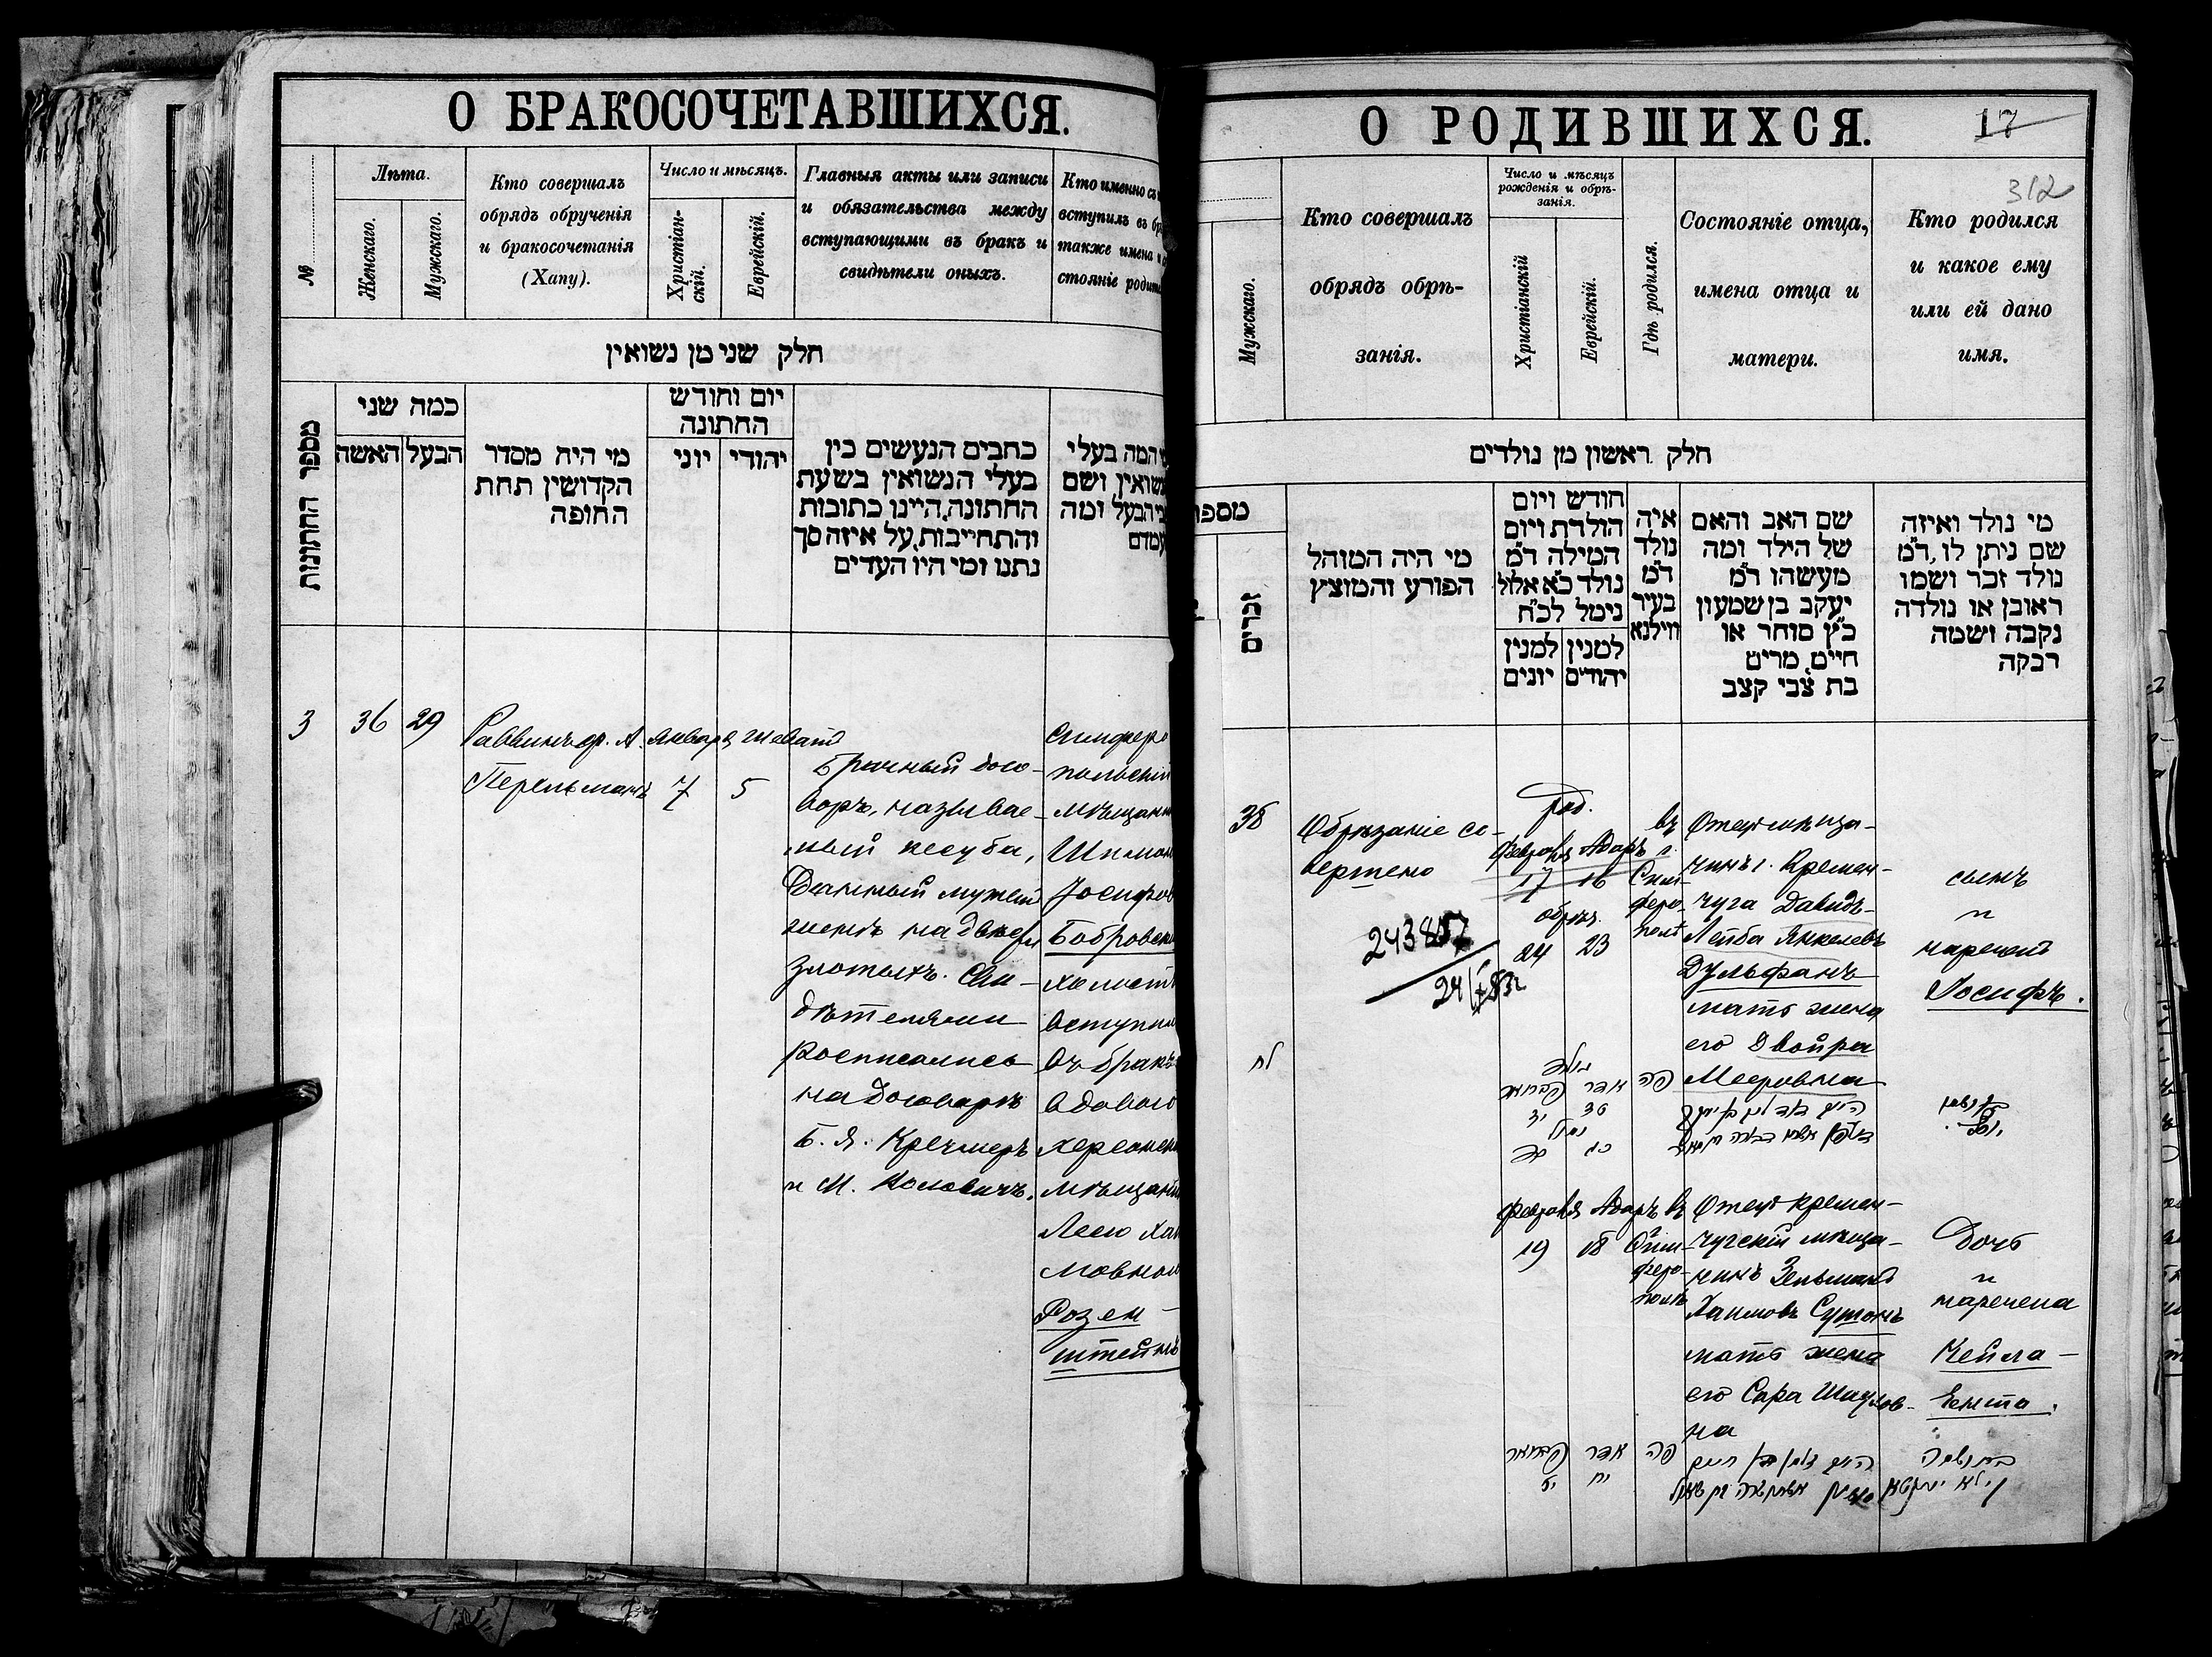 О БРАКОСОЧЕТАВШИХСЯ.
№
Лѣта.
Женскаго.
Мужскаго.
Кто совершалъ
обрядъ обрученія
и бракосочетанія
(Хапу).
Число и мѣсяцъ.
Христіан-
скій.
Еврейскій.
Главныя акты или записи
и обязательства между
вступающими въ бракъ и
свидѣтели оныхъ.
Кто именно съ
вступилъ въ
также имена
стояніе
חלק שני מן נשואין
מספר החתונות
כמה שני
האשה
הבעל
מי היה מסדר
הקדושין תחת
החופה
יום וחודש
החתונה
יוני
יהודי
כתבים הנעשים בין
בעלי הנשואין בשעת
החתונה, היינו כתובות
והתחייבות, על איזה סך
נתנו ומי היו העדים
המה בעלי
ושם
הבעל ומה
3
36
29
Раввинъ др. А.
Перельманъ
Январь
7
Шеватъ
5
Брачный дого-
воръ, называе-
мый кесуба,
данный мужемъ
женѣ на двѣсти
злотыхъ. Сви-
дѣтелями
росписались
на договорѣ
Б. Я. Кречмеръ
и М. Коловичъ.
Симферо
польскій
мѣщанин
Шимон
Іосифов
Бобровск
холост
вступил
въ бракъ
вдовою
херсонск
мѣщан
Леею Хаи
мовной
Розен-
штейнъ
О РОДИВШИХСЯ.
17
312
Мужскаго.
Кто совершалъ
обрядъ обрѣ-
занія.
Число и мѣсяцъ
рожденія и обрѣ-
занія.
Христіанскій
Еврейскій.
Гдѣ родился.
Состояніе отца,
имена отца и
матери.
Кто родился
и какое ему
или ей дано
имя.
חלק ראשון מן נולדים
זכרים
מי היה המוהל
הפורע והמוצץ
חודש ויום
הולדת ויום
המילה ד"מ
נולד כ"א אלול
נימל לכ"ח
למנין
יונים
למנין
יהודים
איה
נולד
ד"מ
בעיר
ווילנא
שם האב והאם
של הילד ומה
מעשהו ד"מ
יעקב בן שמעון
כ"ץ סוחר או
חייט, מרים
בת צבי קצב
מי נולד ואיזה
שם ניתן לו, ד"מ
נולד זכר ושמו
ראובן או נולדה
נקבה ושמה
רבקה
38
Обрѣзаніе со-
вершено
243857
род.
Февраля Адаръ
17 16
обрѣз.
24 23
въ
г.
Сим-
феро-
полѣ
Отецъ мѣща-
нинъ г. Кремен-
чуга Давидъ-
Лейба Янкелевъ
Дульфанъ
мать жена
его Двойра
Мееровна
сынъ
и
нареченъ
Іосифъ.
לח
נולד
פברואר אדר פה
יז טז
נמול
כד כג
Февраля Адаръ въ
19 18 Сим-
феро-
полѣ
Отецъ кремен-
чугскій мѣща-
нинъ Зельманъ
Хаимовъ Сутонъ
мать жена
его Сара Шаулов-
на
Дочь
и
наречена
Кейла-
Ента.
פברואר אדר פה
יט יח